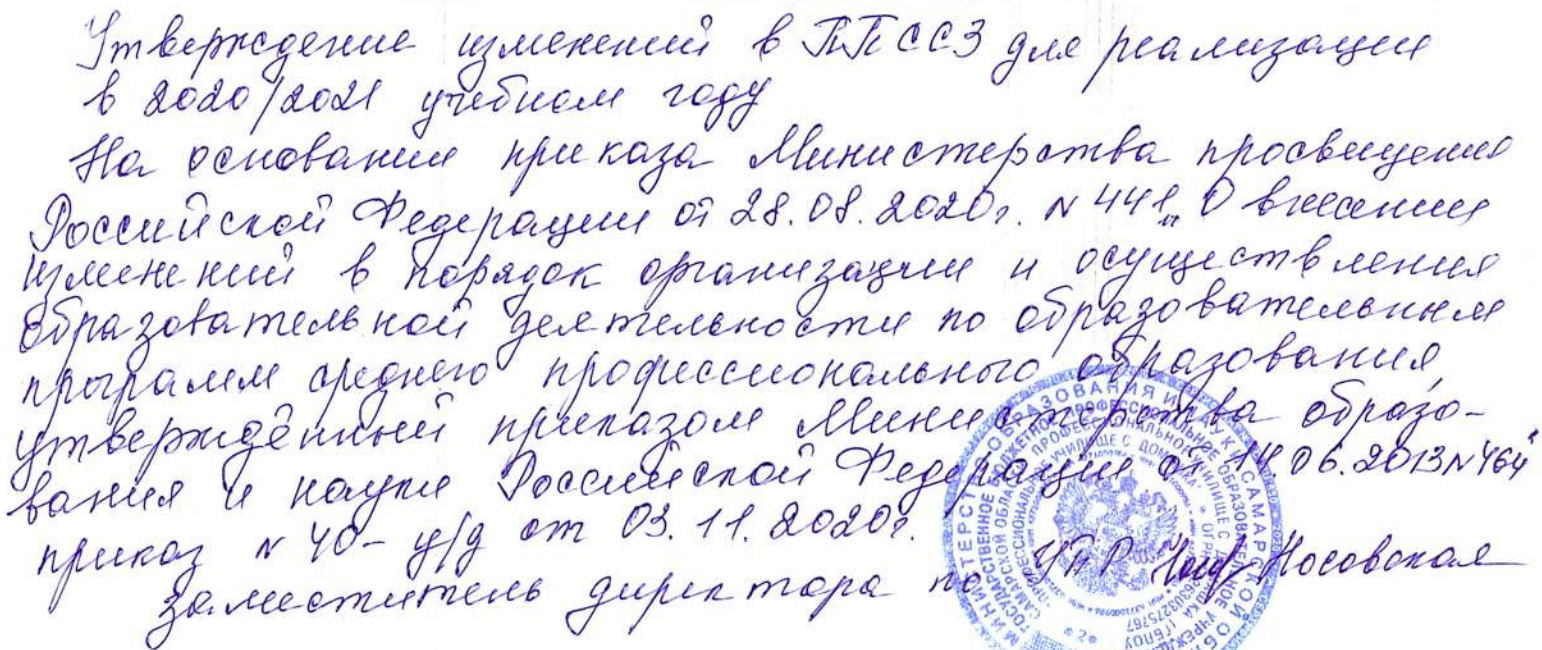 Утверждение изменений в ППССЗ для реализации
в 2020/2021 учебном году
На основании приказа Министерства просвещения
Российской Федерации от 28.08.2020г. N 441 „О внесении
изменений в порядок организации и осуществления
образовательной деятельности по образовательным
програмам среднего профессионального образования,
утверждённый приказом Министерства образо-
вания и науки Российской Федерации от 14.06.2013 N 464"
приказ N 40-у/д от 03.11.2020г.
Заместитель директора по УПР Носовская